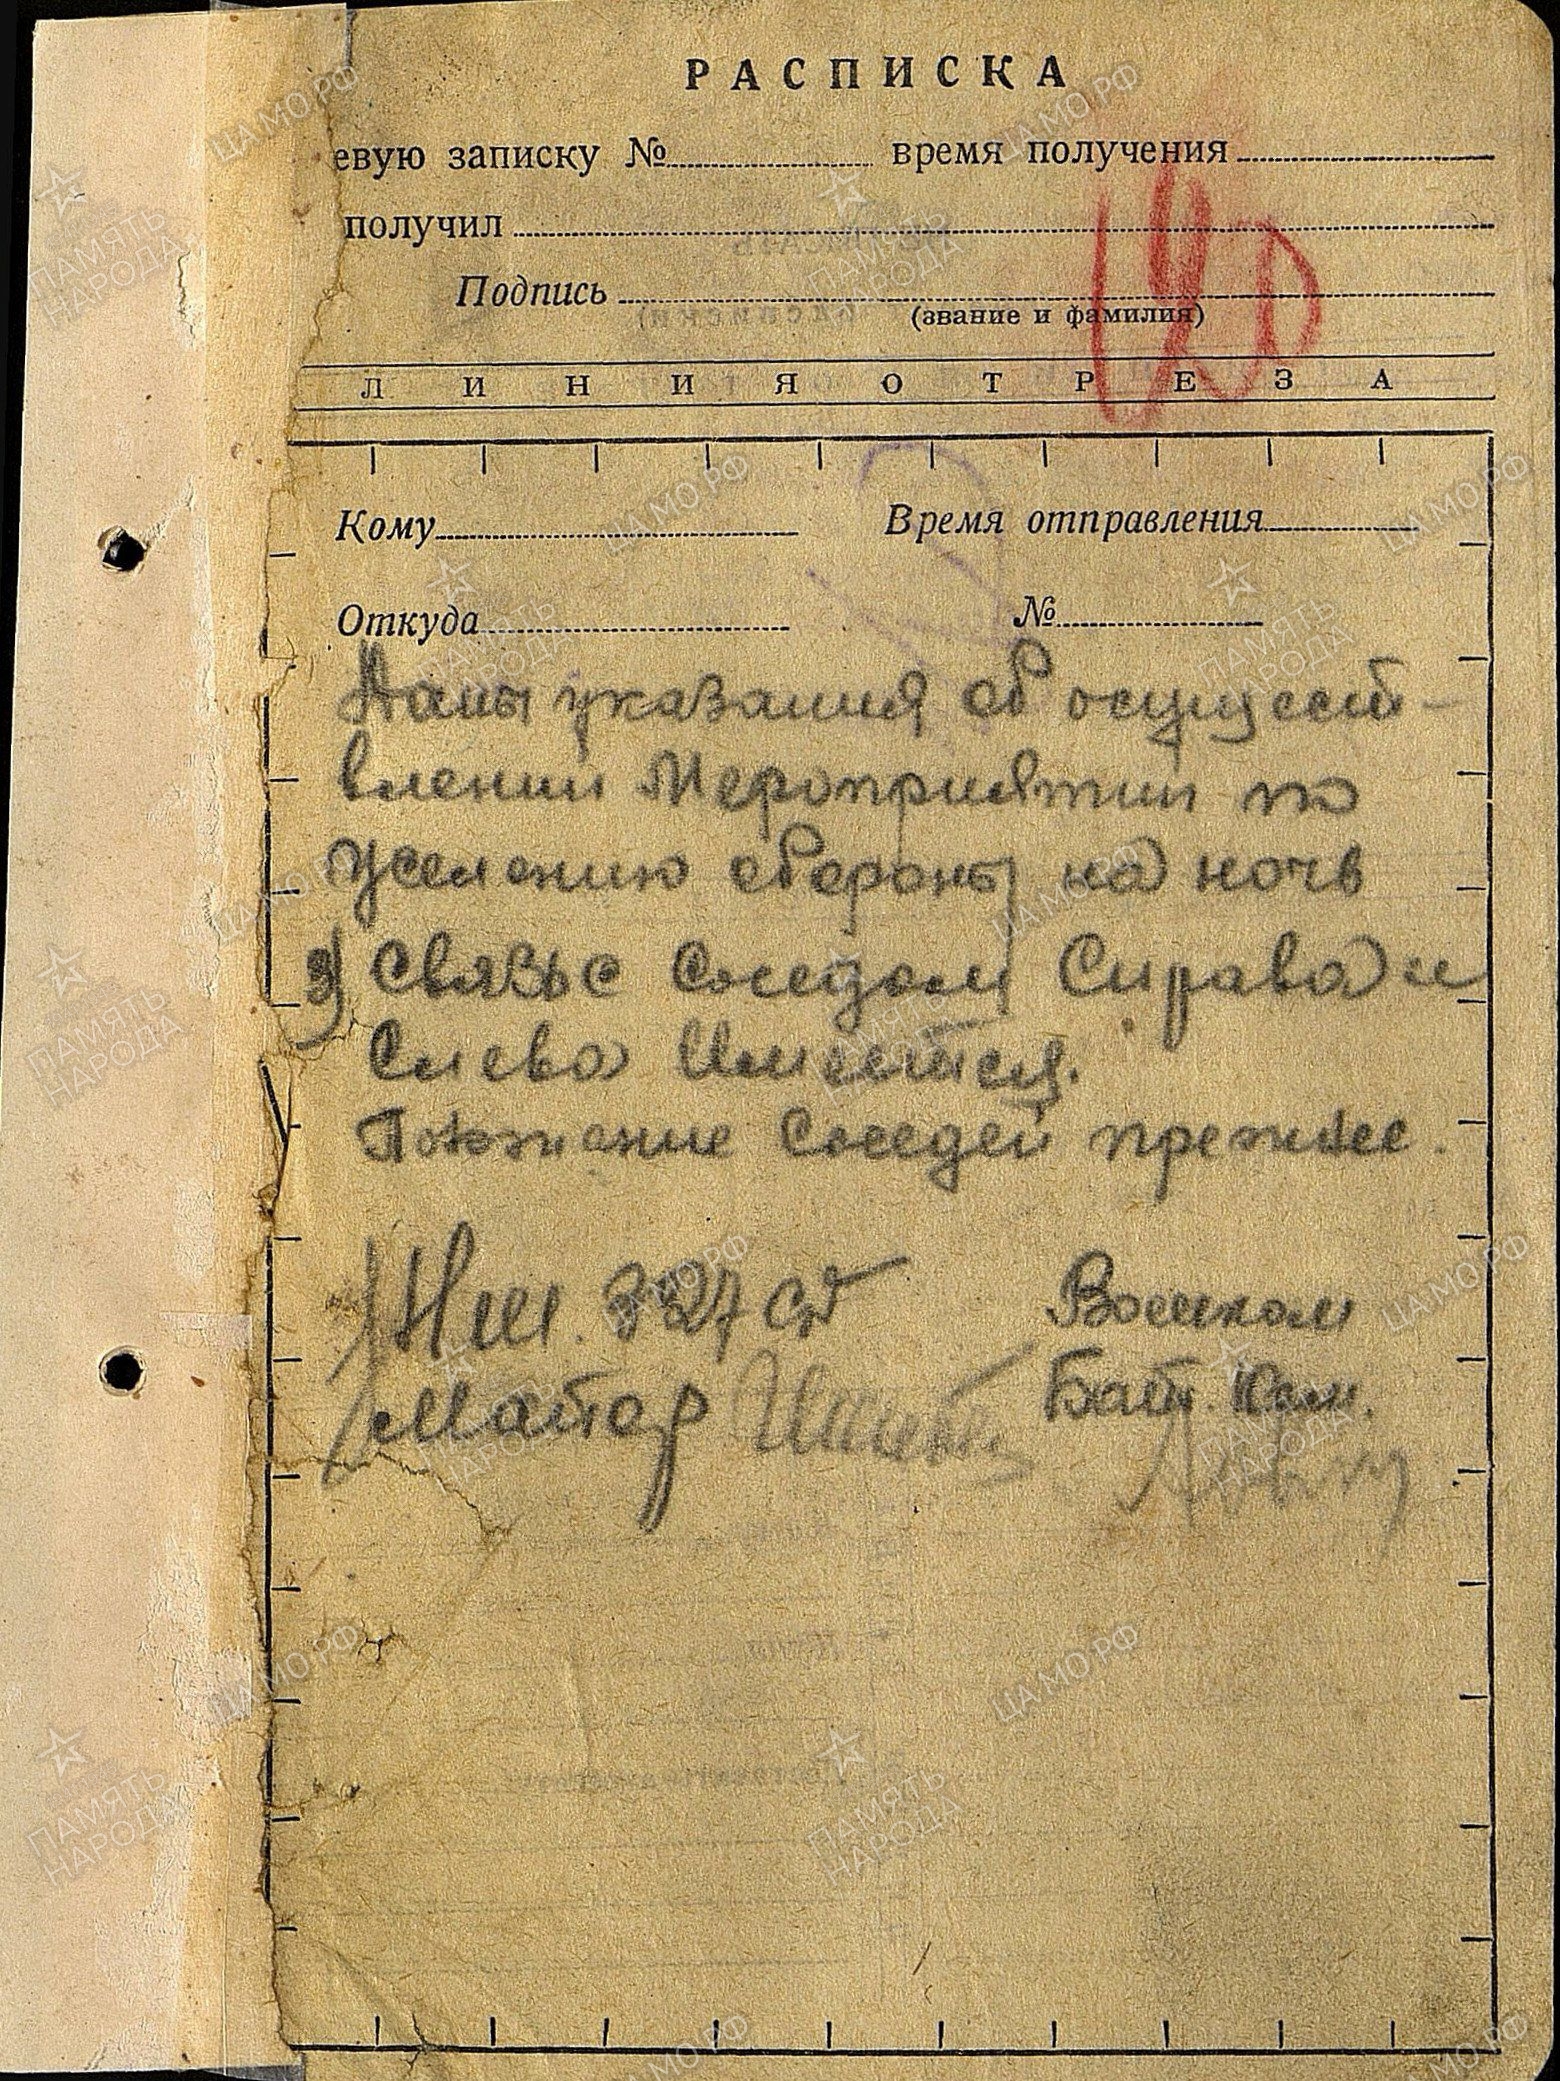 РАСПИСКА
евую записку № время получения
получил
Подпись
(звание и фамилия)
ЛИНИЯ ОТРЕЗА
Кому Время отправления
Откуда №
Даны указания об осущест-
влении Мероприятий по
Уселению обороны на ночь
3) Связь с Соседом Справа и
Слева Имеется.
Положение Соседей прежнее.
Нш. 327 сд Военком
Майор Бат. Ком.
ЦАМО.РФ
ПАМЯТЬ НАРОДА